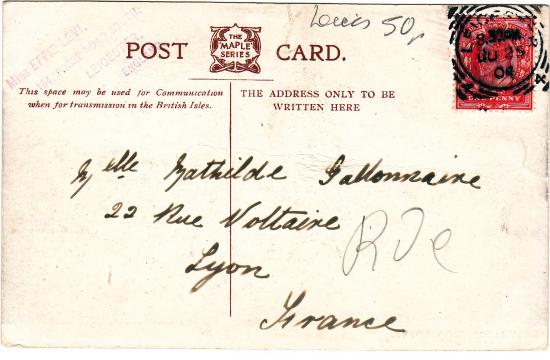 Louis 50
Miss EFFIE LEVI,
LEICESTER,
POST THE "MAPLE" SERIES CARD.
LEICESTER
8.30PM
JU 25
04
ONE PENNY
This space may be used for Communication
when for transmission in the British Isles.
THE ADDRESS ONLY TO BE
WRITTEN HERE
Melle Mathilde Gallonnaire
22 Rue Voltaire
Lyon
France